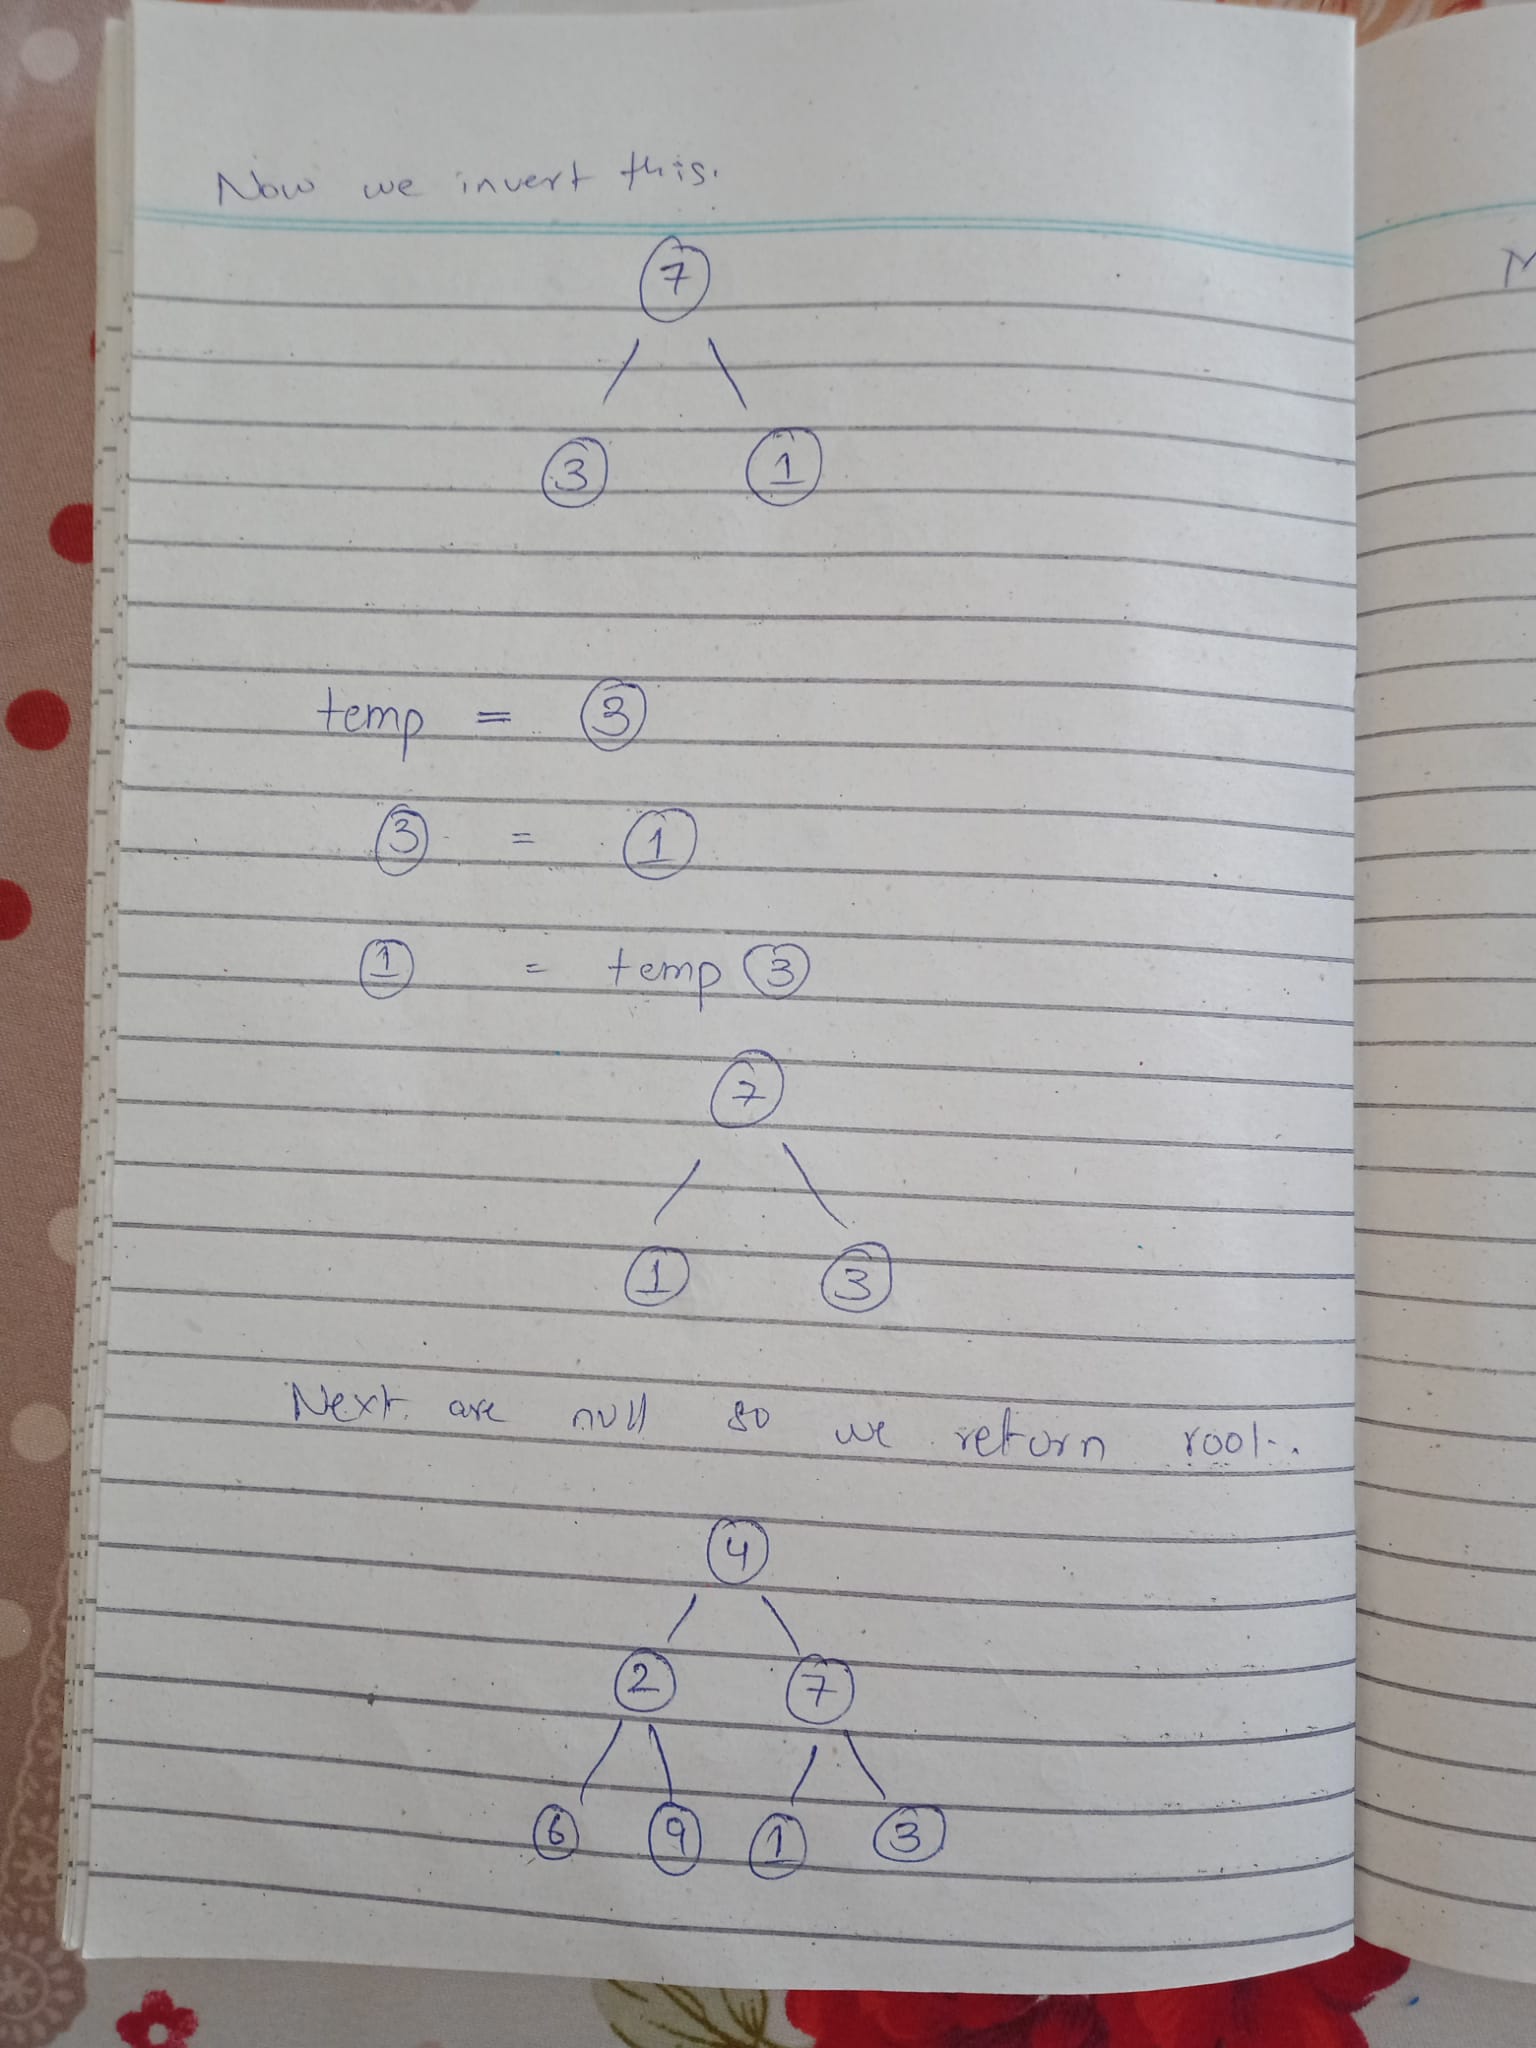 Now we invert this.
7
3 1
temp = 3
3 = 1
1 = temp 3
7
1 3
Next are null so we return root.
4
2 7
6 9 1 3